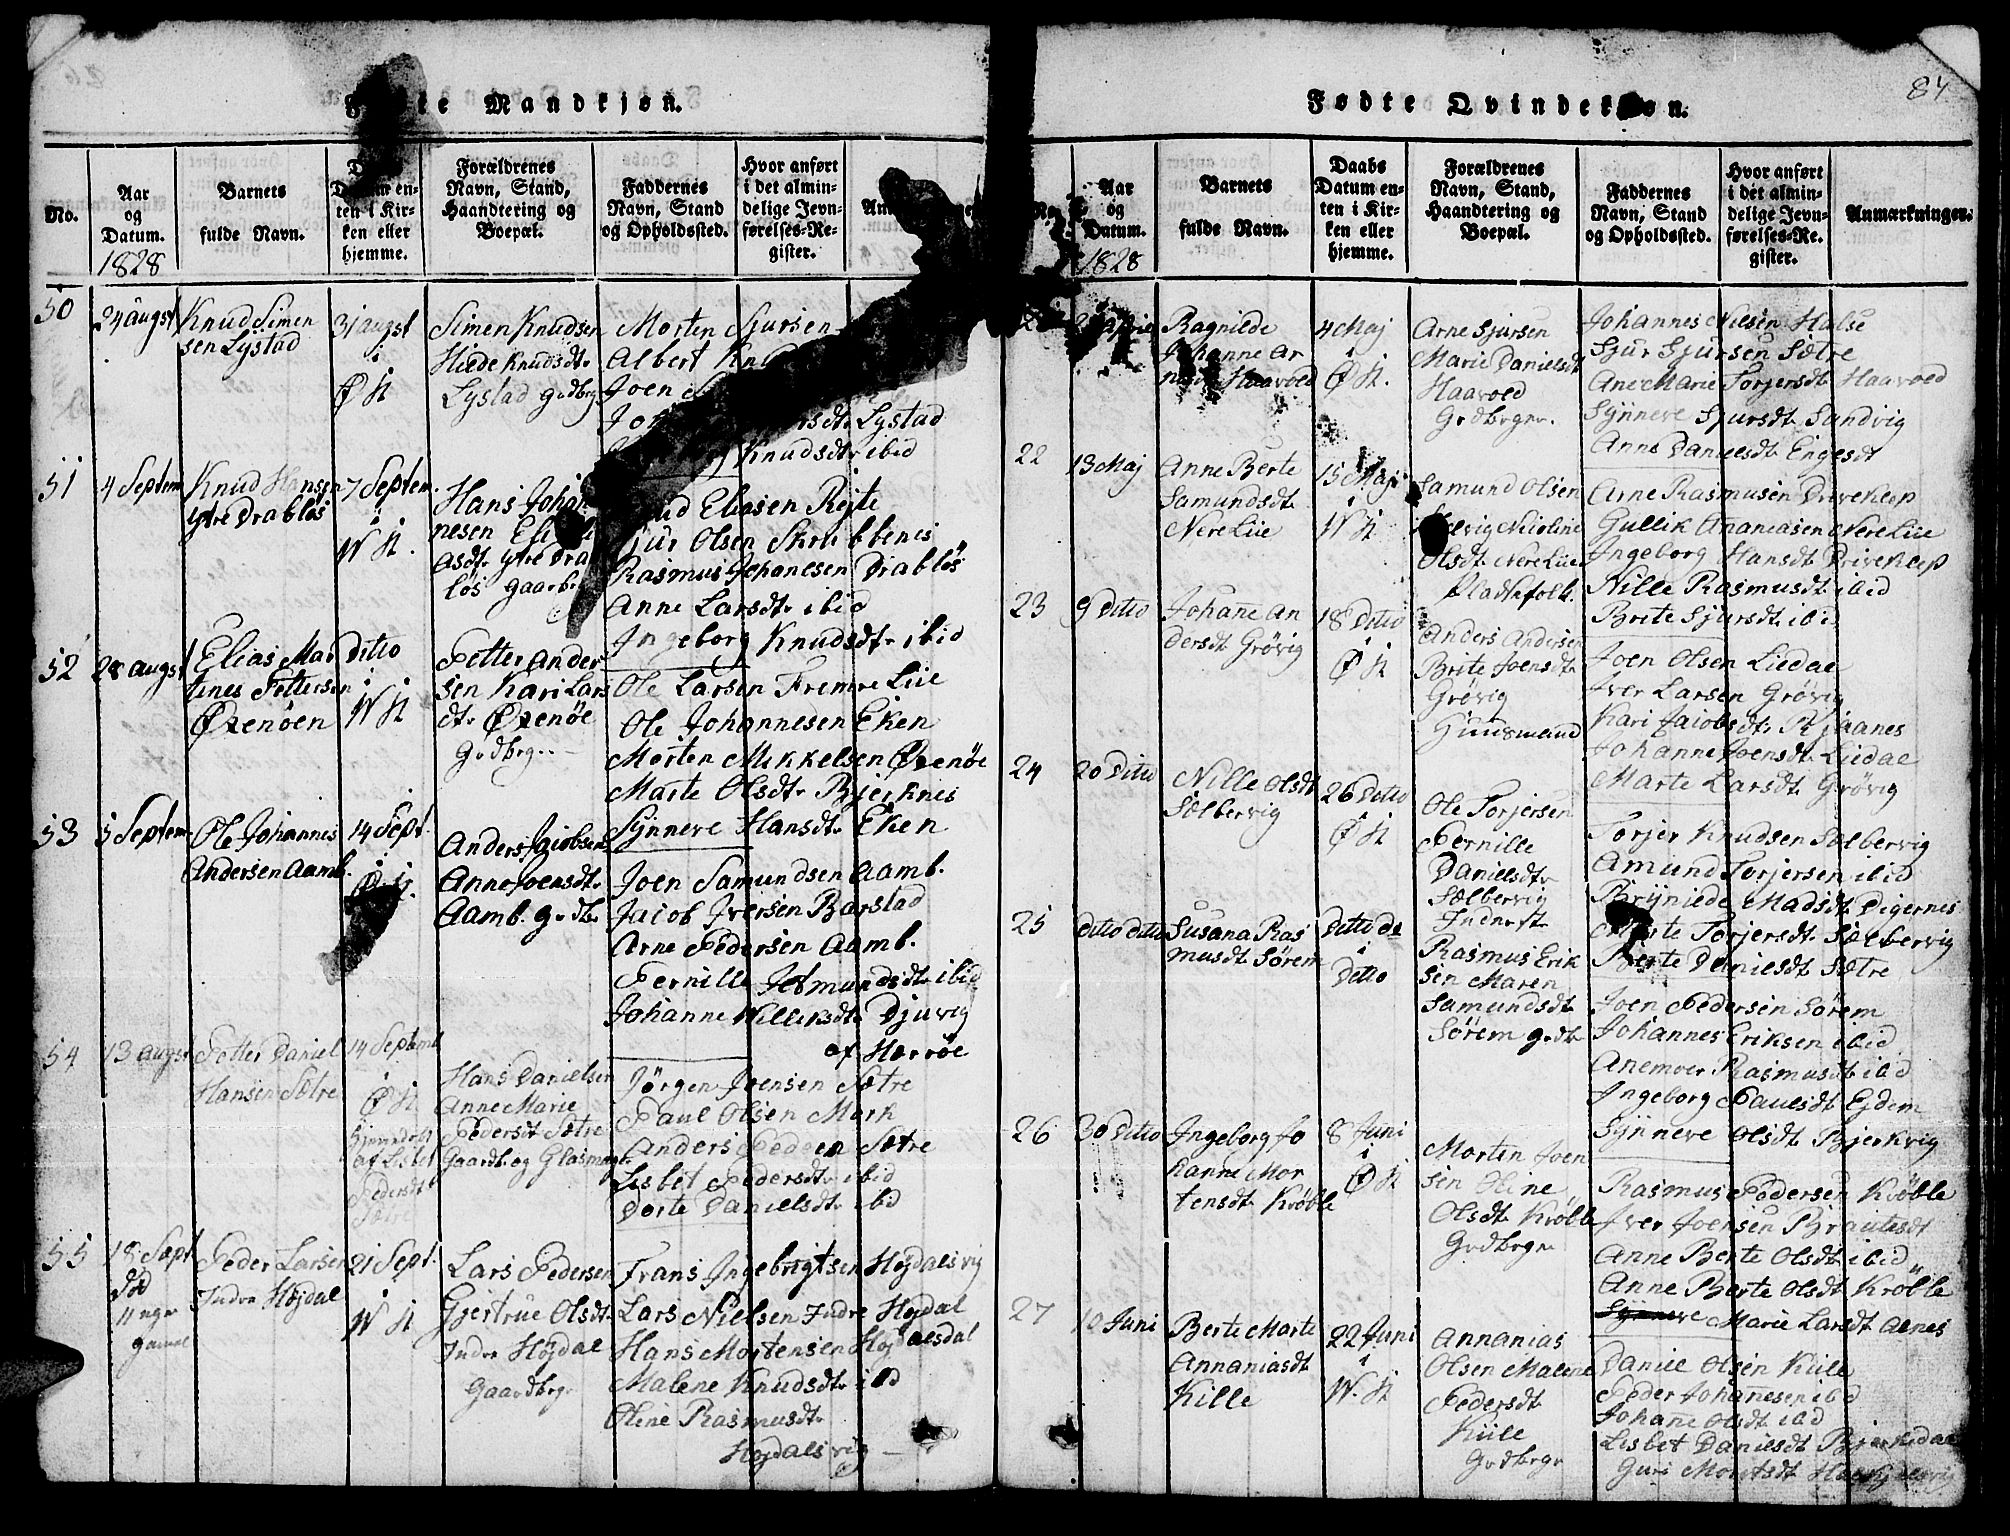 Fødte Mandkjøn.
No.
Aar
og
Datum.
1828
Barnets
fulde Navn.
Datum en-
ten i Kir-
ken eller
hjemme.
Forældrenes
Navn, Stand,
Haandtering og
Boepæl.
Faddernes
Navn, Stand
og Opholdssted.
Hvor anført
i det almin-
delige Jevn-
førelses-Re-
gister.
50
24 augst
Knud Simen
sen Lystad
31 augst
i
Ø K
Simen Knudsen
Hilde Knudsdtr
Lystad gdbrg
Morten Sjursen
Albert
Joen
Lystad
Knudsdtr ibid
51
4 Septem
Knud Hansen
ytre Drabløs
7 Septem.
i
W K.
Hans Johan
nesen
asdtr ytre Dra
løs gaarb
Eliasen Rejte
Sjur Olsen Skrubbenes
Rasmus Johanesen Drabløs
Anne Larsdtr ibid
Ingeborg Knudsdtr ibid
52
28 augst
Elias Mar
tines Pettersen
Øxenøen
Ditto
i
W K
Petter Ander
sen Kari Lars
dtr Øxenøe
Gdbrg.
Ole Larsen Fremre Lie
Ole Johannesen Eken
Morten Mikkelsen Øxenøe
Marte Olsdtr Bjerknes
Synneve Hansdtr Eken
53
5 Septem
Ole Johannes
Andersen Aamb.
14 Sept.
i
Ø K.
Anders Jacobsen
Anne Joensdtr
Aamb. gdb.
Joen Samundsen Aamb.
Jacob Iversen Barstad
Arne Pedersen Aamb.
Pernille Jetmundsdtr ibid
Johanne Williksdtr Djuvig
af Harröe
54
13 augst
Petter Daniel
Hansen Sætre
14 Septemb
i
Ø K
hjemdøbt
af Lisbet
Pedersdt
Sætre
Hans Danielsen
Anne Marie
Pedersdt Sætre
Gaardb og Glasmagr
Jørgen Joensen Sætre
Paul Olsen Mork
Anders Peders Sætre
Lisbet Pedersdtr ibid
Dorte Danielsdtr ibid
55
18 Sept.
Peder Larsen
Indre Højdal
21 Sept.
i
W K
Lars Pedersen
Gjertrue Olsdt.
Indre Højdal
Gaardbrgr
Frans Ingebrigtsen Højdalsvig
Lars Nielsen Indre Højdal
Hans Mortensen Højdalsdal
Malene Knudsdtr ibid
Oline Rasmusdtr
Højdalsvig
84
Fødte Qvindekjøn.
Aar
og
Datum.
1828
Barnets
fulde Navn.
Daabs
Datum en-
ten i Kir-
ken eller
hjemme.
Forældrenes
Navn, Stand,
Haandtering og
Boepæl.
Faddernes
Navn, Stand
og Opholdssted.
Hvor anført
i det almin-
delige Jevn-
førelses-Re-
gister.
Anmærkninger.
Ragnilde
Johanne Ar
Haavoed
4 Maj
i
Ø K.
Arne Sjursen
Marie Danielsdt
Haavoed
Gdbrgr.
Johannes Nilsen Halse
Sjur Sjursen Sætre
Ane Marie Torjersdt Haavoed
Synneve Sjursdt Sandvig
Anne Danielsdt Engesdt
22
13 Maj
Anne Berte
Samundsdt
Nere Lie
15 Maj
i
W K
Samund Olsen
Nicoline
Olsdt Nere Lie
Pladsfolk.
Arne Rasmusen Driveklep
Gullik Ananiasen Nere Lie
Ingeborg Hansdt Driveklep
Nille Rasmusdt ibid
Brite Sjursdt ibid
23
9 Ditto
Johane An
dersdt Grøvig
18 Ditto
i
Ø K
Anders Andersen
Brite Joensdt
Grøvig
Huusmand
Joen Olsen Liedal
Iver Larsen Grøvig
Kari Jacobsdt
Johanne Joensdt Liedal
Marte Larsdt Grøvig
24
20 Ditto
Nille Olsdt
Sølbervig
26 Ditto
i
Ø K
Ole Torjersen
Pernille
Danielsdtr
Sølbervig
Inderst
Torjer Knudsen Sølbervig
Amund Torjersen ibid
Brynilde Madsdt Digernes
Torjersdt Sølbervig
Berte Danielsdt Sætre
25
Ditto Ditto
Susana Ras
musdt Sørem
Ditto do
i
Ditto
Rasmus Erik
sen Maren
Samundsdt
Sørem gdb
Joen Pedersen Sørem
Johannes Eriksen ibid
Anemoer Rasmusdt ibid
Ingeborg Paulsdt Ejdem
Synneve Olsdt Bjerkvig
26
30 Ditto
Ingeborg Jo
hanne Mor
tensdt Krøble
8 Juni
i
Ø K
Morten Joen
sen Oline
Olsdt Krøble
Gdbrgr
Rasmus Pedersen Krøble
Iver Joensen Brautesdt
Anne Berte Olsdt ibid
Anne Berte Olsdt Krøble
Marie Larsdt Aenes
27
10 Juni
Berte Marte
Annaniasdt
Kille
22 Juni
i
W. K
Annanias
Olsen Malene
Pedersdt
Kiile
Gdbrgr
Daniel Olsen Kiile
Peder Johanesen ibid
Johane Olsdt ibid
Lisbet Danielsdt Bjerkedal
Guri